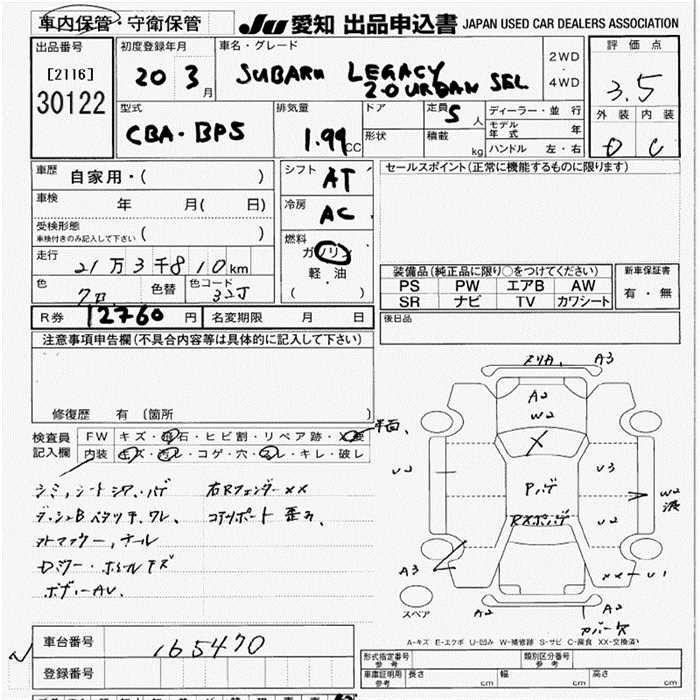 車内保管・守衛保管
JU 愛知 出品申込書 JAPAN USED CAR DEALERS ASSOCIATION
出品番号
[2116]
30122
初度登録年月
20 3月
車名・グレード
SUBARU LEGACY
2.0 URBAN SEL
2WD
・
4WD
評価点
3.5
外装 内装
D C
型式
CBA・BP5
排気量
1.99CC
ドア
定員 5人
形状
積載 kg
ディーラー・並行
モデル年式 年
ハンドル 左・右
車歴 自家用・( )
車検 年 月( 日)
受検形態
車検付きのみ記入して下さい ( )
走行
21万3千810km
色
色替
色コード
32J
シフト AT
冷房 AC
燃料
ガソリン
軽油
( )
セールスポイント(正常に機能するものに限ります)
装備品(純正品に限り○をつけてください)
PS PW エアB AW
SR ナビ TV カワシート
新車保証書
有・無
R券 12760円 名変期限 月 日
後日品
注意事項申告欄(不具合内容等は具体的に記入して下さい)
修復歴 有 〔箇所 〕
検査員記入欄
FW キズ・飛石・ヒビ割・リペア跡・X要
内装 キズ・汚レ・コゲ・穴・スレ・キレ・破レ
シミ、シートシワ、ハゲ
右Rフェンダー××
コアサポート歪み、
ボディーAU、
ヌリA、 A3
A2
W2
X
U2
U3
Pハゲ
W2
波
U2
RXポハゲ
A3
××
U1
A2
A2
カバー欠
スペア
A-キズ E-エクボ U-凹み W-補修跡 S-サビ C-腐食 XX-交換済み
車台番号 165470
登録番号
形式指定番号
参考
類別区分番号
参考
車庫証明用
参考
長さ cm 幅 cm 高さ cm